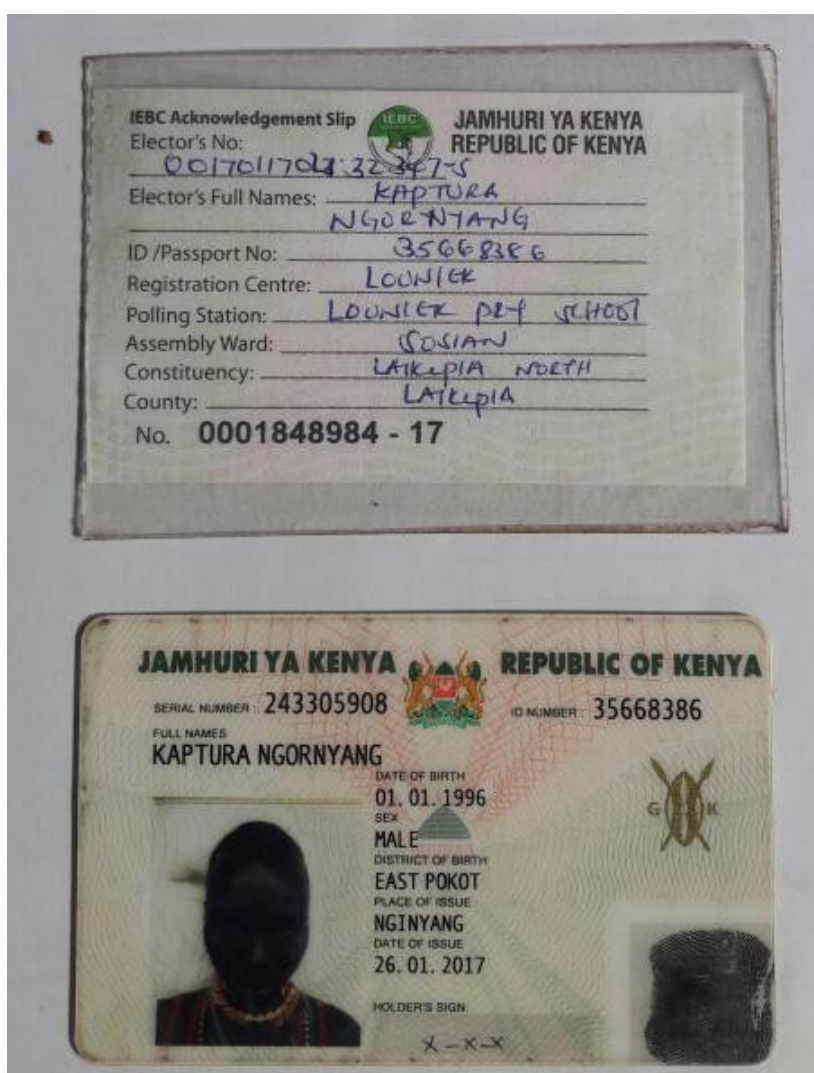 IEBC Acknowledgement Slip
IEBC
JAMHURI YA KENYA
REPUBLIC OF KENYA
Elector's No:
Elector's Full Names: KAPTURA
NGORNYANG
ID /Passport No: 35668386
Registration Centre: LOUNIEK
Polling Station: LOUNIEK PRY SCHOOL
Assembly Ward: SOSIAN
Constituency: LAIKIPIA NORTH
County: LAIKIPIA
No. 0001848984 - 17
JAMHURI YA KENYA REPUBLIC OF KENYA
SERIAL NUMBER: 243305908 ID NUMBER: 35668386
FULL NAMES
KAPTURA NGORNYANG
DATE OF BIRTH
01. 01. 1996
SEX
MALE
G K
DISTRICT OF BIRTH
EAST POKOT
PLACE OF ISSUE
NGINYANG
DATE OF ISSUE
26. 01. 2017
HOLDER'S SIGN.
X-X-X